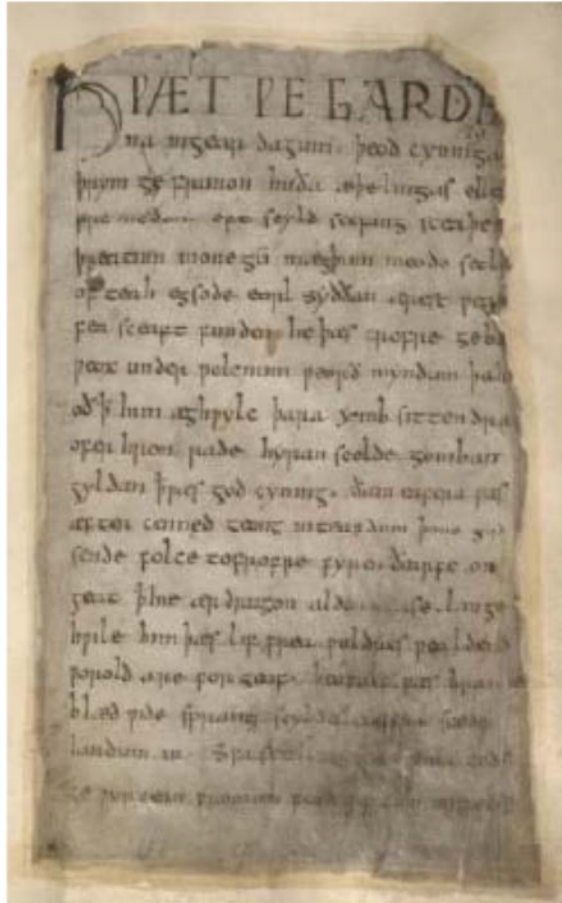 HǷÆT ǷE GARDE
na ingear dagum. þeod cyninga
þrym ge frunon huða æþelingas elle
fre medon. oft scyld scefing sceaþe
þreatum monegū mægþum meodo setla
of teah egsode eorl syððan ærest ƿear
fea sceaft funden he þæs frofre geba
ƿeox under ƿolcnum ƿeorð myndum þah
oð þ him æghƿylc þara ymb sittendra
ofer hron rade hyran scolde gomban
gyldan þ ƿæs god cyning. ðam eafera ƿæs
æfter cenned geong in geardum þone god
sende folce tofrofre fyren ðearfe on
geat þ hie ær drugon aldor ase. lange
hƿile him þæs lif frea ƿuldres ƿealdend
ƿorold are for geaf. beoƿulf ƿæs breme
blæd ƿide sprang scyldes eafera scede
landum in. Sƿa sceal